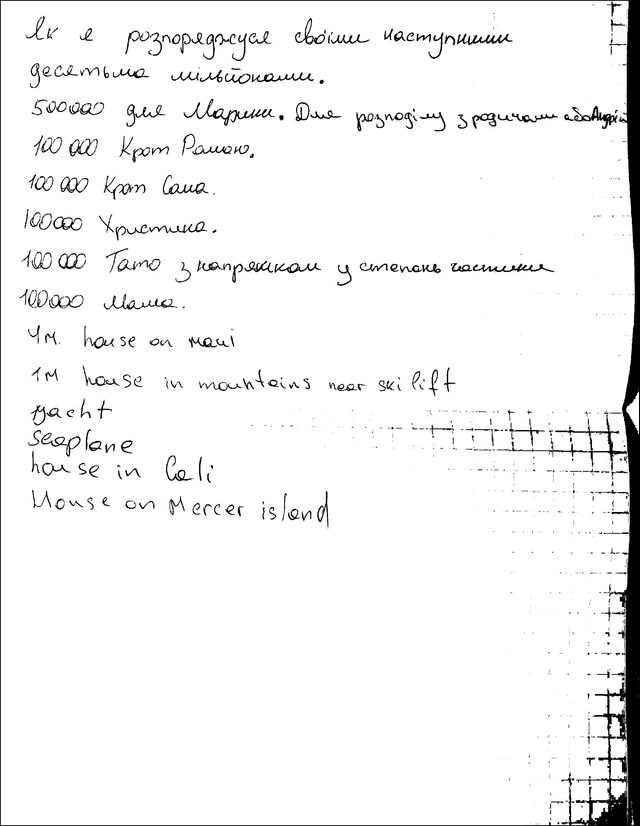 Як я розпоряджуся своїми наступними
десятьма мільйонами.
500000 для Марини. Для розподілу з родичами або Андрій
100 000 Крот Рамаю.
100 000 Крот Саша.
100000 Христина.
100 000 Тато з напряжком у степень частики
100000 Мама.
4м. house on maui
1м house in mountains near ski lift
yacht
seaplane
house in Cali
House on Mercer island